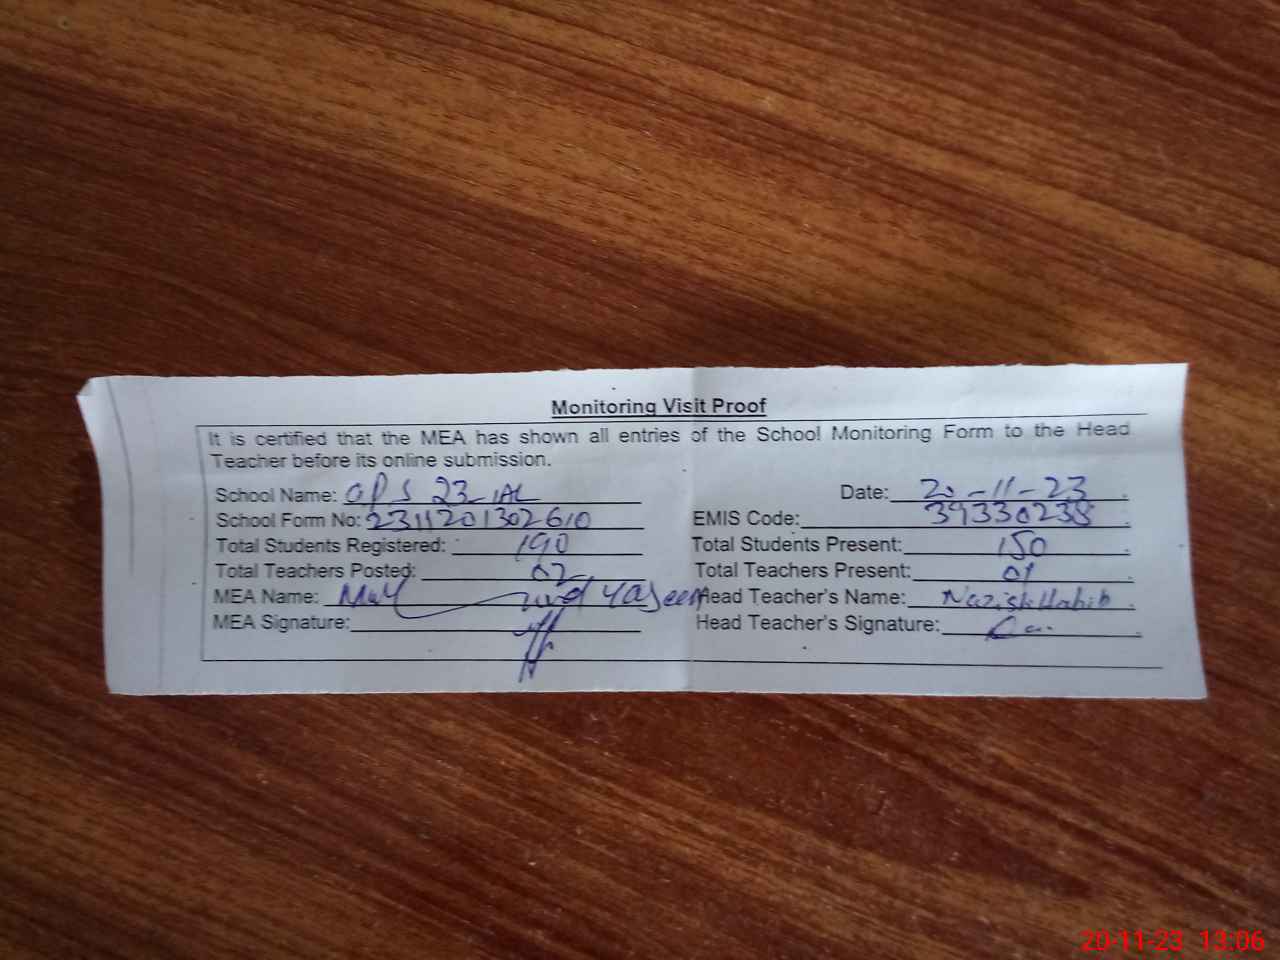 Monitoring Visit Proof
It is certified that the MEA has shown all entries of the School Monitoring Form to the Head
Teacher before its online submission.
School Name: GPS 23-1AL Date: 20-11-23
School Form No: 2311201302610 EMIS Code: 39330238
Total Students Registered: 190 Total Students Present: 150
Total Teachers Posted: 02 Total Teachers Present: 01
MEA Name: Yaseen Head Teacher's Name: Nazish Habib
MEA Signature: Head Teacher's Signature:
20-11-23 13:06